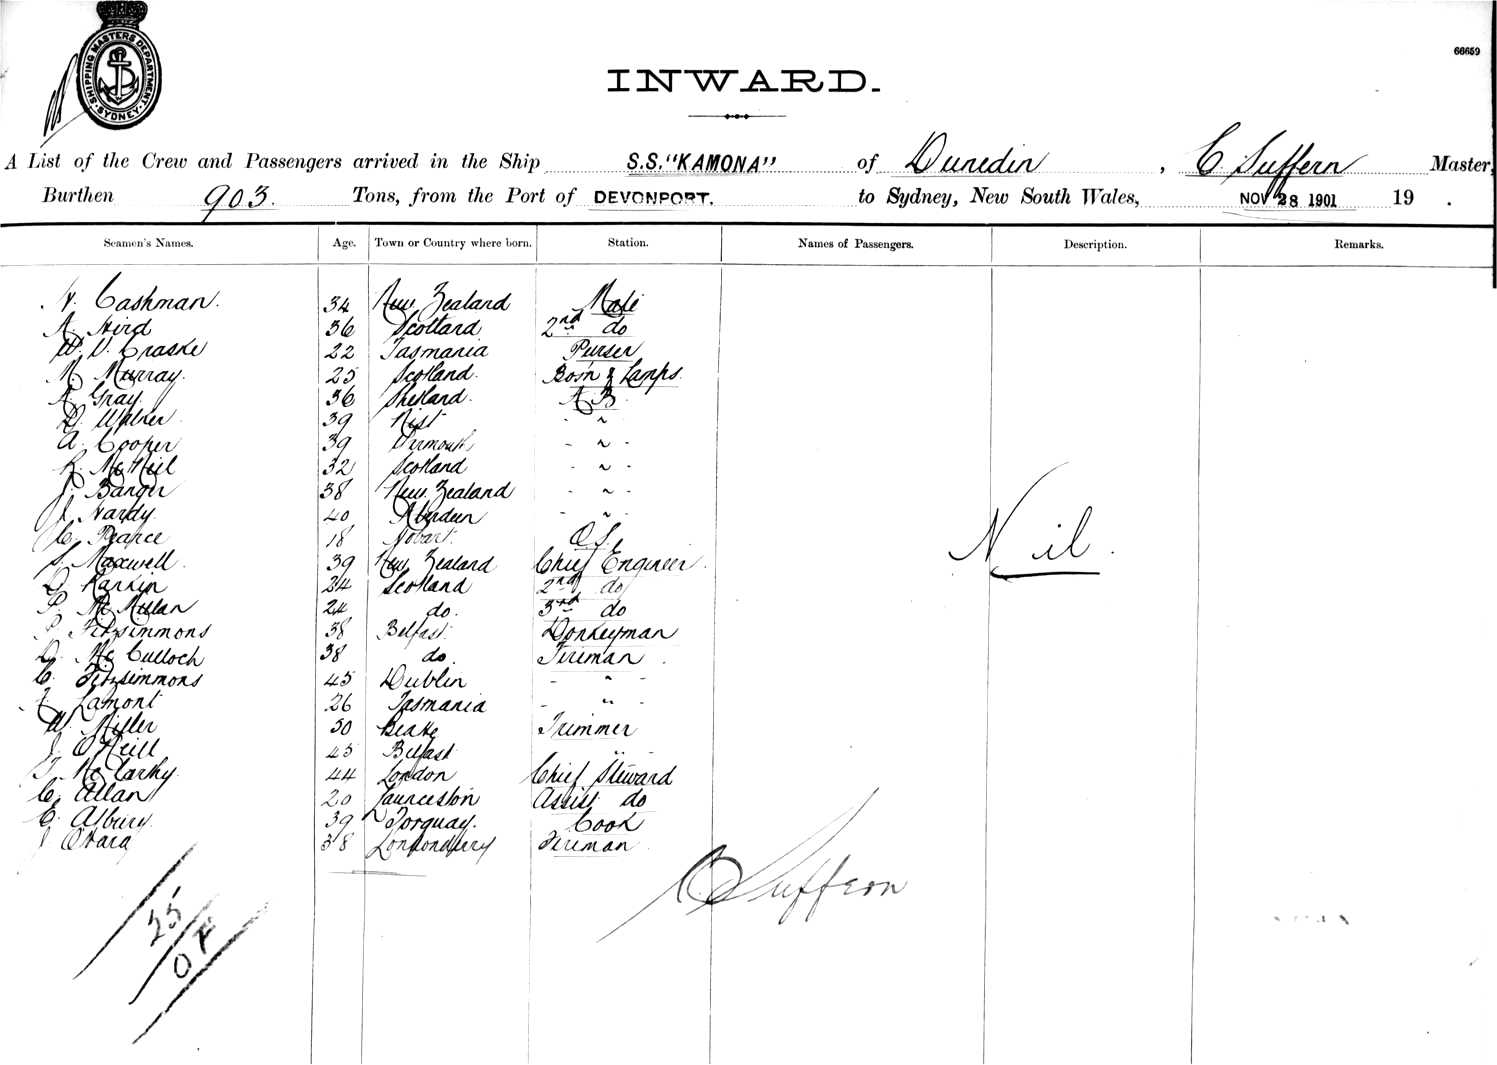 SHIPPING MASTERS DEPARTMENT
SYDNEY
66659
INWARD.
A List of the Crew and Passengers arrived in the Ship S.S. "KAMONA" of Dunedin, C Suffern Master,
Burthen 903. Tons, from the Port of DEVONPORT. to Sydney, New South Wales, NOV 28 1901 19 .
Seamen's Names. Age. Town or Country where born. Station. Names of Passengers. Description. Remarks.
Cashman. 34 New Zealand Mate
A. Hird 36 Scotland 2nd do
W. V. Craske 22 Tasmania Purser
M Murray. 25 Scotland. Bosn & Lamps.
A. Gray. 36 Shetland. A B
39 - " -
A. Cooper 39 - " -
R. McNeil 32 Scotland - " -
J. Banger 38 New Zealand - " -
J. Hardy 40 Aberdeen - " -
C. Pearce 18 Hobart. O S.
S. Maxwell. 39 New Zealand Chief Engineer.
D. Rankin 24 Scotland 2nd do
P. McMillan 24 do. 3rd do
P. Fitzsimmons 38 Belfast. Donkeyman
D. McCulloch 38 do. Fireman.
C. Fitzsimmons 45 Dublin - " -
Lamont 26 Tasmania - " -
W. Miller 30 Trimmer
J. O'Neill 45 Belfast - " -
T. McCarthy. 44 London Chief Steward
C. Allan 20 Launceston Assist do
E. Asbury. 39 Torquay. Cook
J O'Hara 38 Londonderry Fireman.
Nil.
C Suffern
25
0